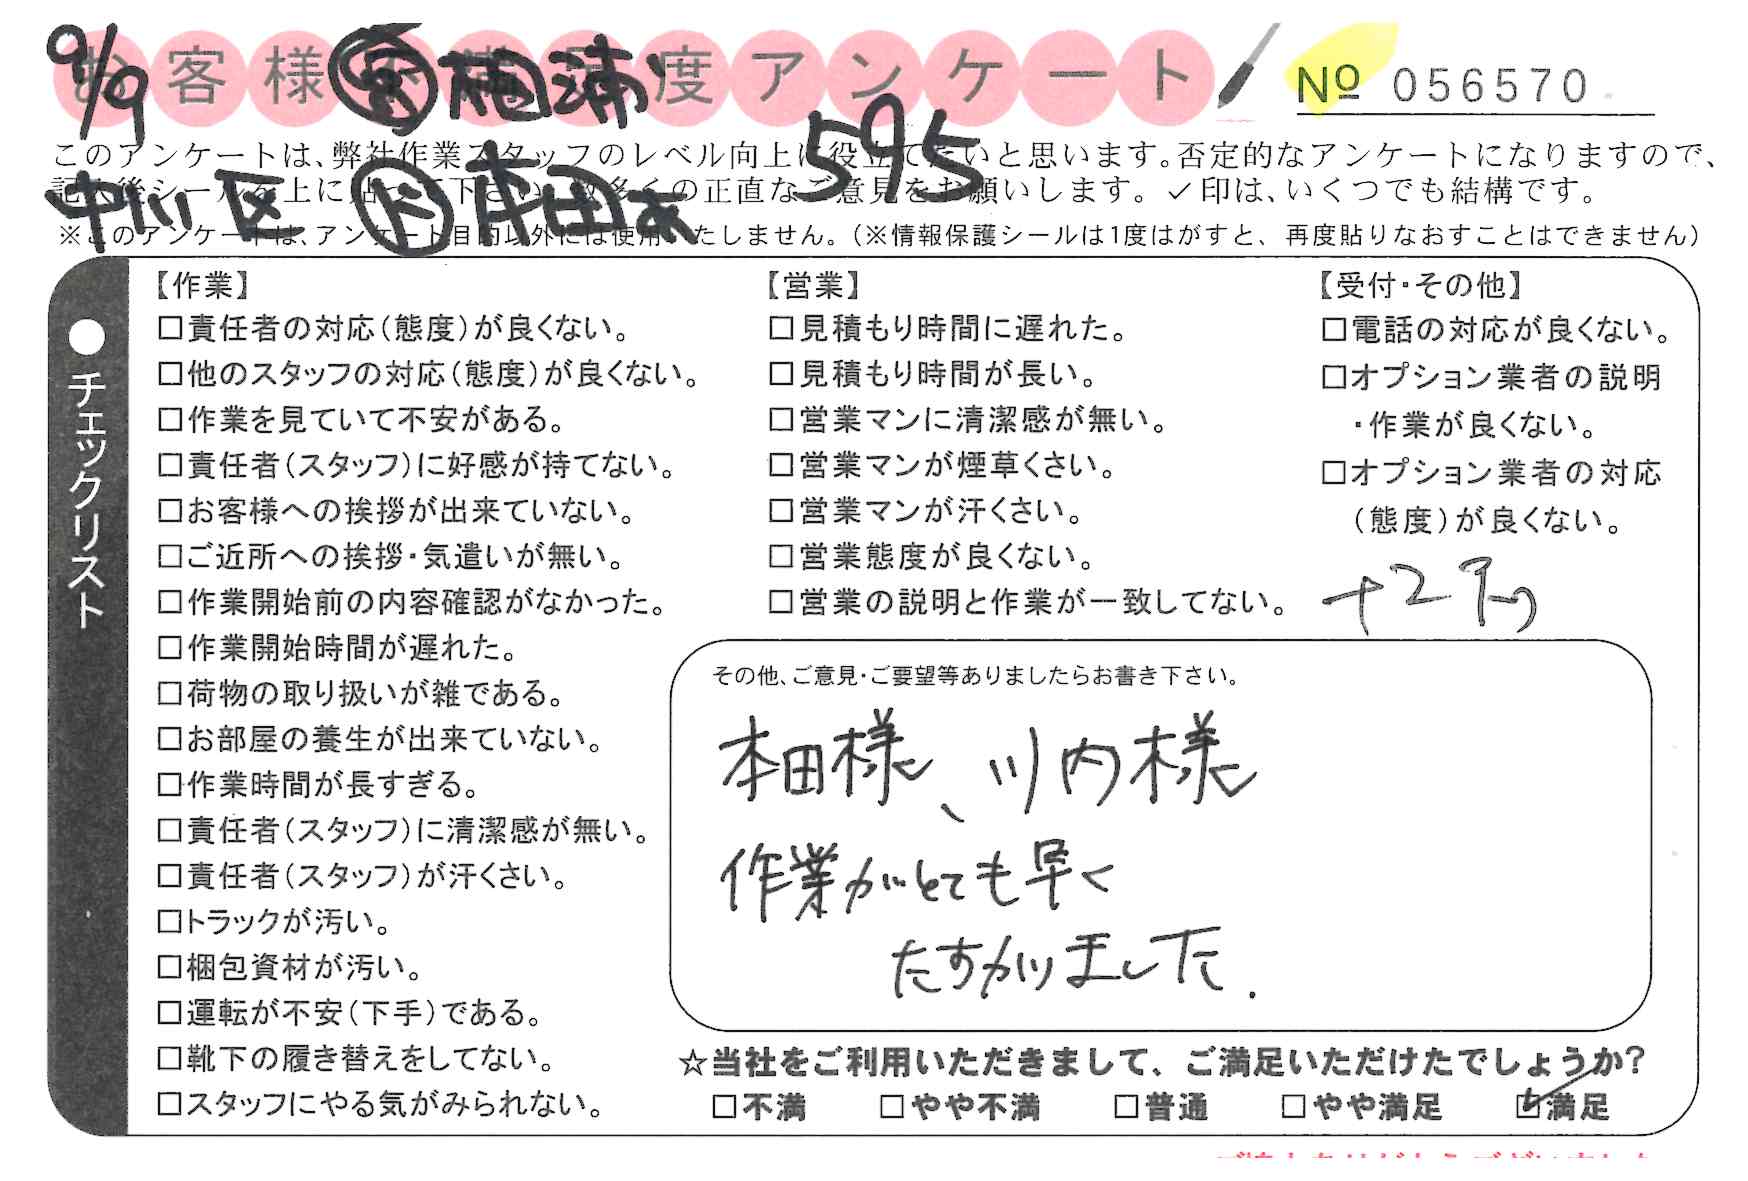 9/9
お客様不満足度アンケート
No 056570
595
このアンケートは、弊社作業スタッフのレベル向上に役立てたいと思います。否定的なアンケートになりますので、
記入後シールを上に貼って下さい。数多くの正直なご意見をお願いします。✓印は、いくつでも結構です。
中川区 本田
※このアンケートは、アンケート目的以外には使用いたしません。(※情報保護シールは1度はがすと、再度貼りなおすことはできません)
●チェックリスト
【作業】
□責任者の対応(態度)が良くない。
□他のスタッフの対応(態度)が良くない。
□作業を見ていて不安がある。
□責任者(スタッフ)に好感が持てない。
□お客様への挨拶が出来ていない。
□ご近所への挨拶・気遣いが無い。
□作業開始前の内容確認がなかった。
□作業開始時間が遅れた。
□荷物の取り扱いが雑である。
□お部屋の養生が出来ていない。
□作業時間が長すぎる。
□責任者(スタッフ)に清潔感が無い。
□責任者(スタッフ)が汗くさい。
□トラックが汚い。
□梱包資材が汚い。
□運転が不安(下手)である。
□靴下の履き替えをしてない。
□スタッフにやる気がみられない。
【営業】
□見積もり時間に遅れた。
□見積もり時間が長い。
□営業マンに清潔感が無い。
□営業マンが煙草くさい。
□営業マンが汗くさい。
□営業態度が良くない。
□営業の説明と作業が一致してない。
【受付・その他】
□電話の対応が良くない。
□オプション業者の説明
・作業が良くない。
□オプション業者の対応
(態度)が良くない。
その他、ご意見・ご要望等ありましたらお書き下さい。
本田様、川内様
作業がとても早く
たすかりました.
☆当社をご利用いただきまして、ご満足いただけたでしょうか?
□不満 □やや不満 □普通 □やや満足 ☑満足